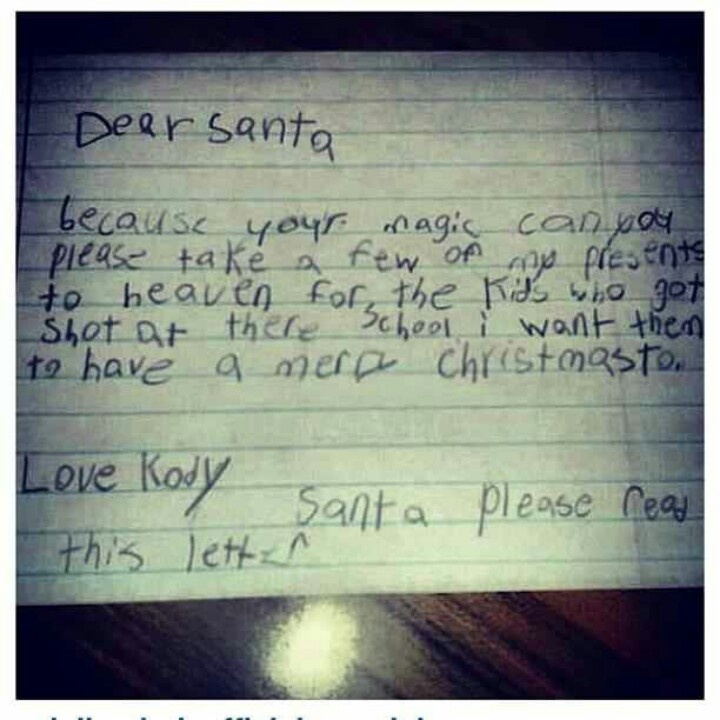 Dear Santa
because your magic can you
please take a few of my presents
to heaven for the kids who got
Shot at there School i want them
to have a mery christmas to.
Love Kody
Santa please read
this letter